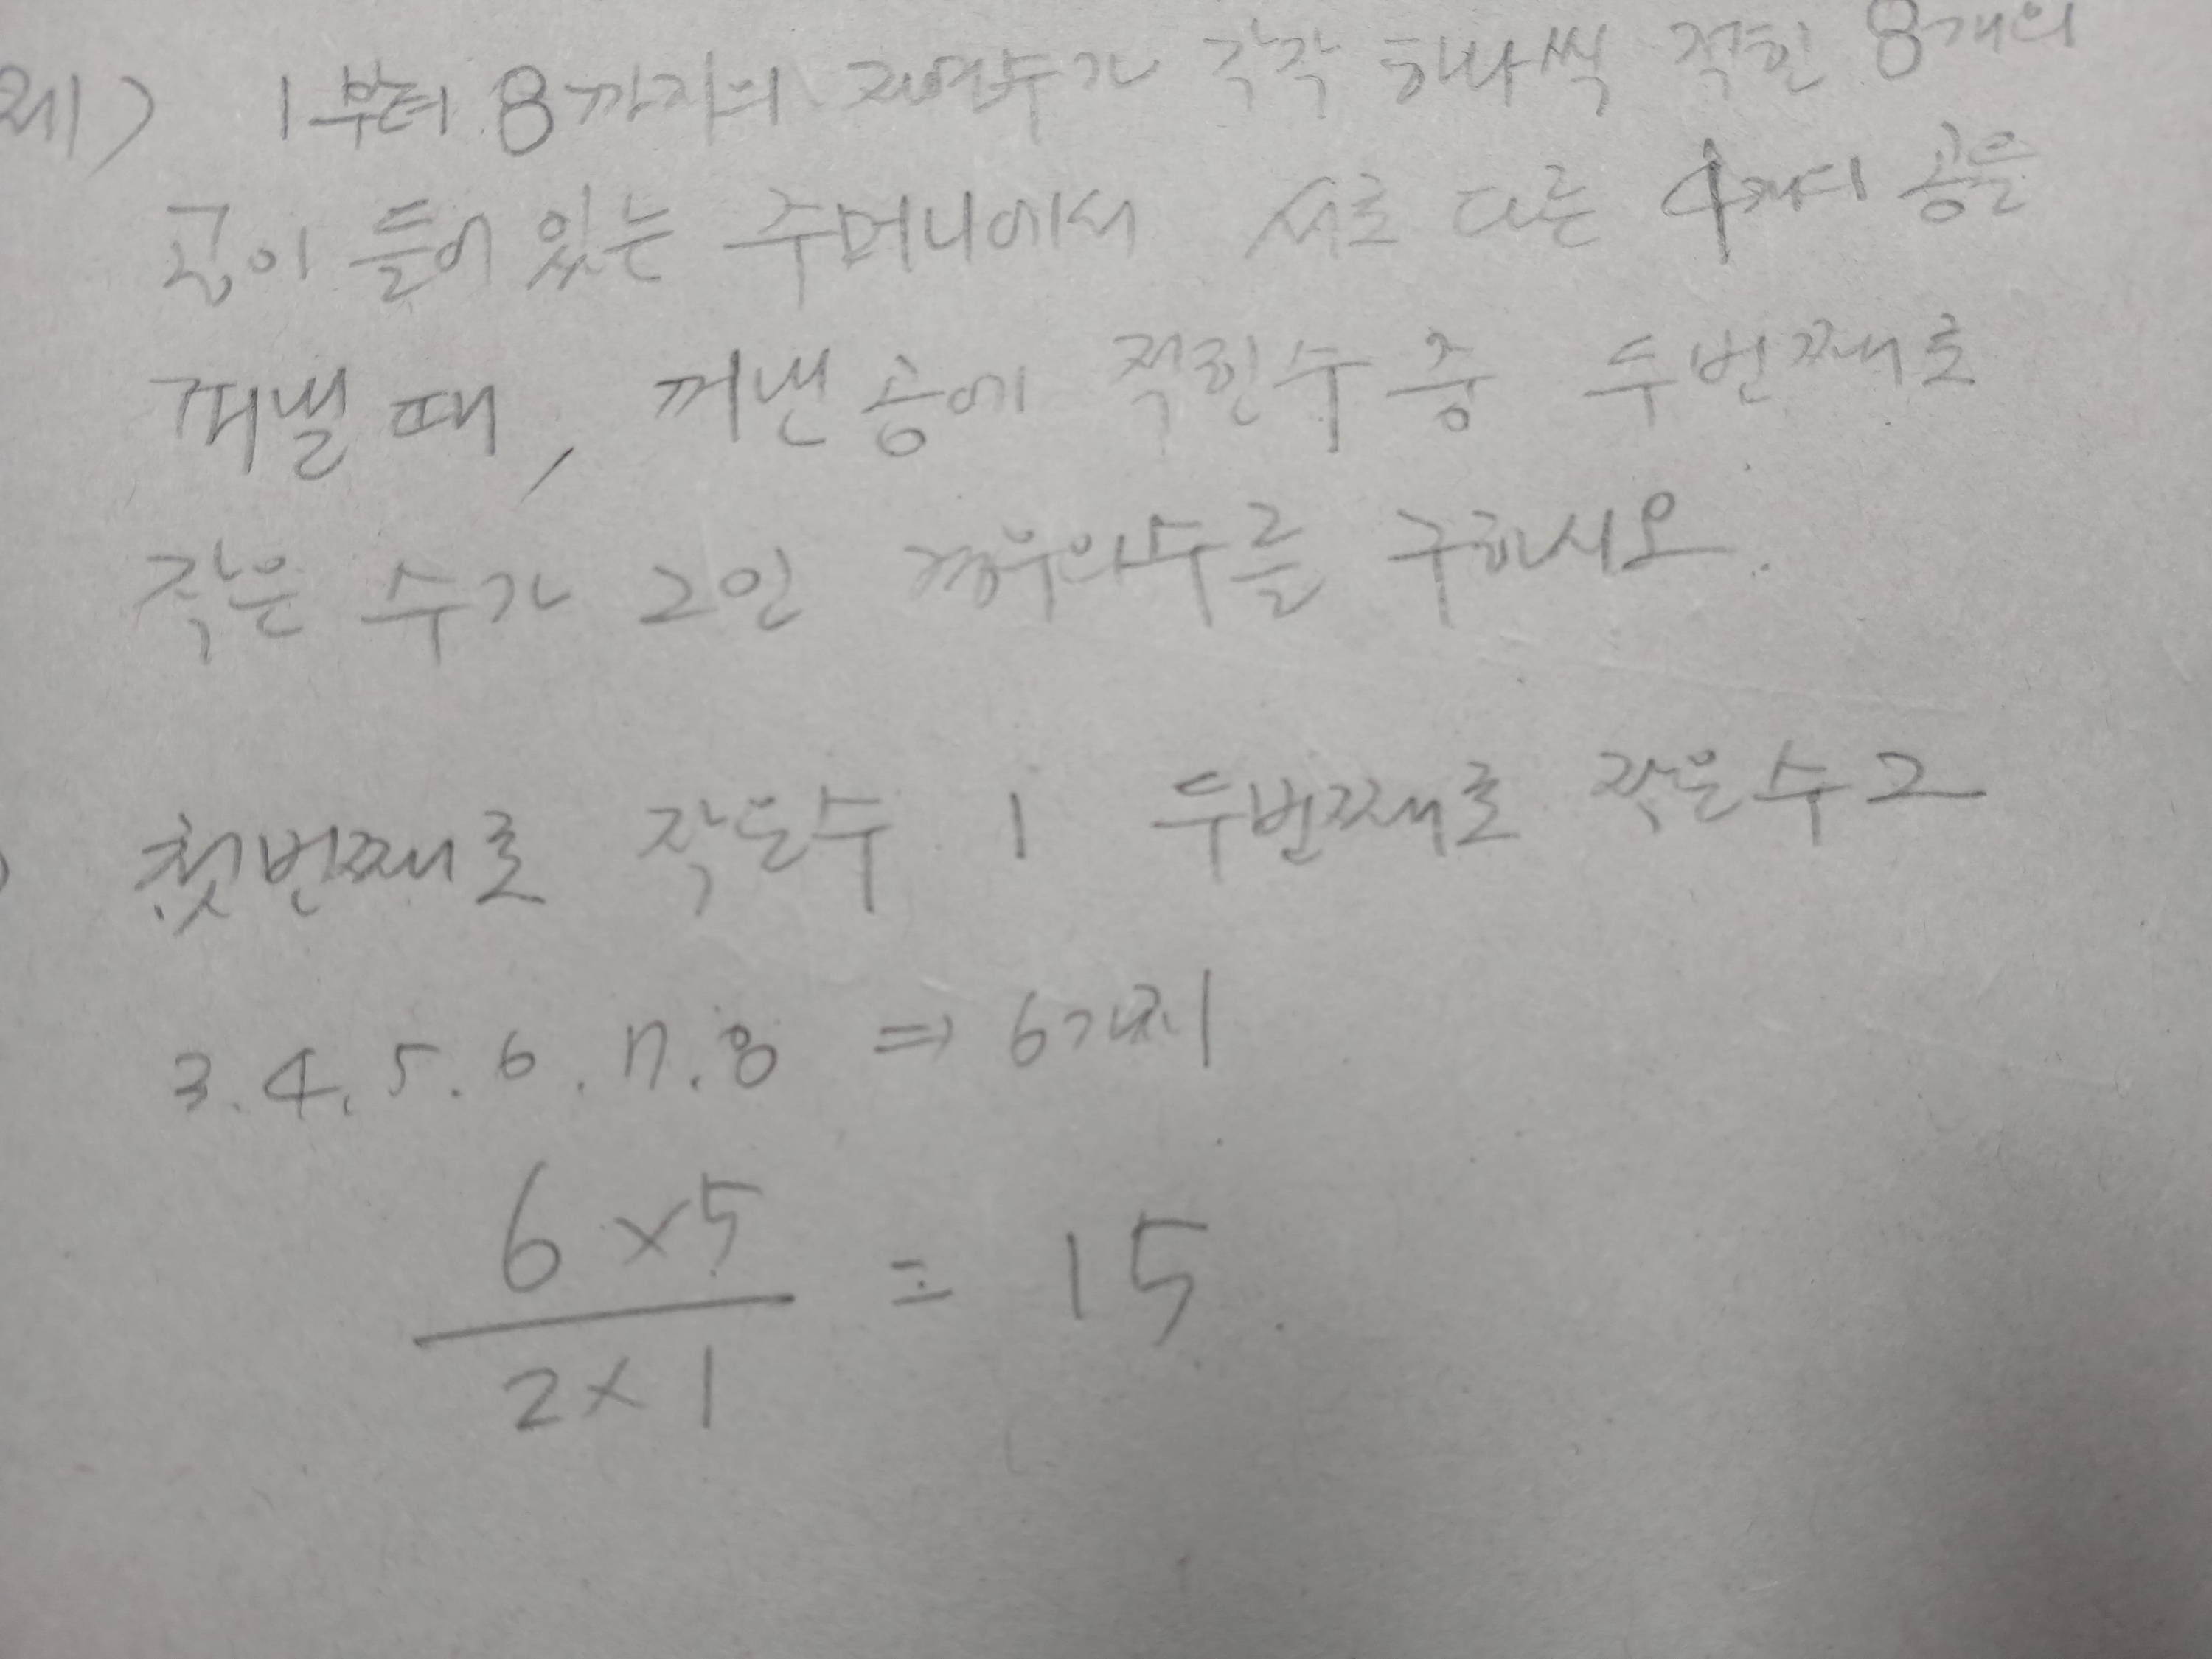 제) 1부터 8까지의 자연수가 각각 하나씩 적힌 8개의
공이 들어 있는 주머니에서 서로 다른 4개의 공을
꺼낼 때, 꺼낸 공에 적힌 수 중 두번째로
작은 수가 2인 경우의 수를 구하시오.
첫번째로 작은수 1 두번째로 작은수 2
3. 4. 5. 6. 7. 8 ⇒ 6가지
6 × 5
= 15
2 × 1